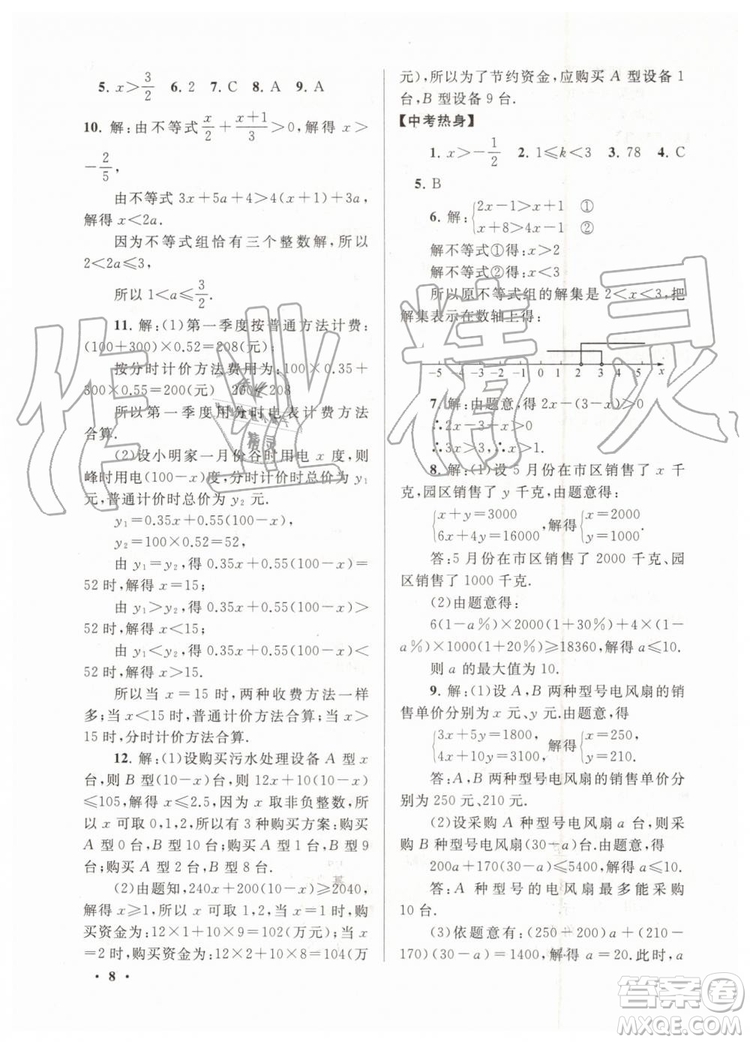 5. x>3/2 6. 2 7. C 8. A 9. A
10. 解:由不等式 x/2+(x+1)/3>0,解得 x>
-2/5,
由不等式 3x+5a+4>4(x+1)+3a,
解得 x<2a.
因为不等式组恰有三个整数解,所以
2<2a≤3,
所以 1<a≤3/2.
11. 解:(1)第一季度按普通方法计费:
(100+300)×0.52=208(元);
按分时计价方法费用为:100×0.35+
300×0.55=200(元) 200<208
所以第一季度用分时电表计费方法
合算.
(2)设小明家一月份谷时用电 x 度,则
峰时用电(100-x)度,分时计价时总价为 y₁
元;普通计价时总价为 y₂ 元.
y₁=0.35x+0.55(100-x)
y₂=0.52×100=52
由 y₁=y₂,得 0.35x+0.55(100-x)=
52 时,解得 x=15;
由 y₁>y₂,得 0.35x+0.55(100-x)>
52 时,解得 x<15;
由 y₁<y₂,得 0.35x+0.55(100-x)<
52 时,解得 x>15.
所以当 x=15 时,两种收费方法一样
多;当 x<15 时,普通计价方法合算;当 x>15
时,分时计价方法合算.
12. 解:(1)设购买污水处理设备 A 型 x
台,则 B 型(10-x)台,则 12x+10(10-x)
≤105,解得 x≤2.5,因为 x 取非负整数,所
以 x 可取 0、1、2,所以有 3 种购买方案:购买
A 型 0 台,B 型 10 台;购买 A 型 1 台,B 型 9
台;购买 A 型 2 台,B 型 8 台.
(2)由题知,240x+200(10-x)≥2040,
解得 x≥1,所以 x 取 1 或 2,当 x=1 时,购
买资金为:12×1+10×9=102(万元),当 x
=2 时,购买资金为:12×2+10×8=104(万
• 8 •
元),所以为了节约资金,应购买 A 型设备 1
台,B 型设备 9 台.
【中考热身】
1. x>-1/2 2. 1≤k<3 3. 78 4. C
5. B
6. 解:{2x-1>x+1 ①
x+8>4x-1 ②
解不等式①得:x>2
解不等式②得:x<3
所以原不等式组的解集是 2<x<3,把
解集表示在数轴上得:
-5 -4 -3 -2 -1 0 1 2 3 4 5 x
7. 解:由题意得:2x-(3-x)>0
∴3x>3 ∴x>1.
8. 解:(1)设 5 月份在市区销售了 x 千
克,园区销售了 y 千克,由题意得:
{x+y=3000
6x+4y=16000,解得{x=2000
y=1000
答:5 月份在市区销售了 2000 千克、园
区销售了 1000 千克.
(2)由题意得:
6(1-a%)×2000(1+30%)+4×(1-
a%)×1000(1+20%)≥18360,解得 a≤10.
则 a 的最大值为 10.
9. 解:(1)设 A、B 两种型号电风扇的销
售单价分别为 x 元、y 元,由题意得:
{3x+5y=1800,
4x+10y=3100,解得{x=250,
y=210.
答:A、B 两种型号电风扇的销售单价分
别为 250 元、210 元.
(2)设采购 A 种型号电风扇 a 台,则采
购 B 种型号电风扇(30-a)台,由题意得:
200a+170(30-a)≤5400,解得 a≤10.
答:A 种型号的电风扇最多能采购
10 台.
(3)依题意有:(250-200)a+(210-
170)(30-a)=1400,解得 a=20.此时,a
作业精灵
作业精灵
答案圈
MXQE.COM